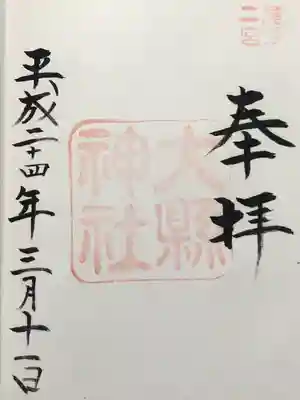 奉拝
大縣神社
平成二十四年三月十一日